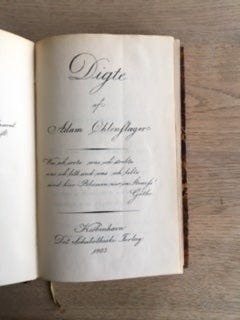 Digte
af
Adam Øhlenslæger
Was ich irrte, was ich strebte
was ich litt und was ich lebte
sind hier Blumen nur im Strauss!
Göthe.
København
Det Schubotheske Forlag
1903